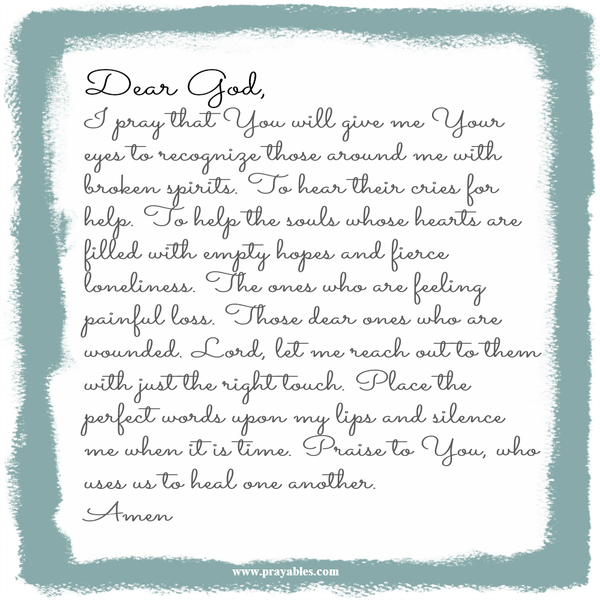 Dear God,
I pray that You will give me Your
eyes to recognize those around me with
broken spirits. To hear their cries for
help. To help the souls whose hearts are
filled with empty hopes and fierce
loneliness. The ones who are feeling
painful loss. Those dear ones who are
wounded. Lord, let me reach out to them
with just the right touch. Place the
perfect words upon my lips and silence
me when it is time. Praise to You, who
uses us to heal one another.
Amen
www.prayables.com